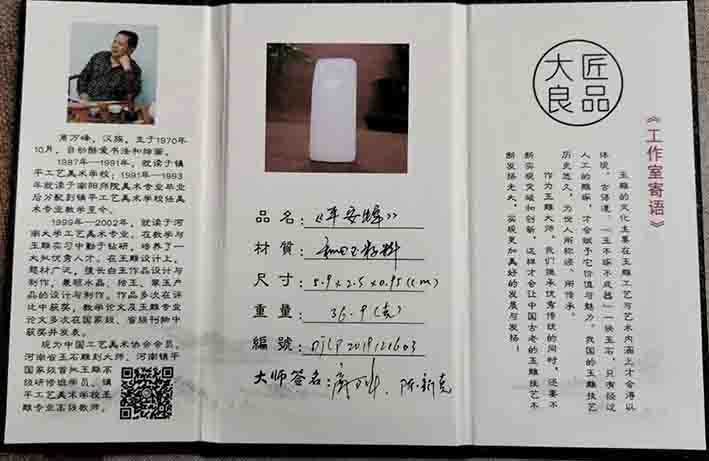 肖万峰，汉族，生于1970年
10月，自幼酷爱书法和绘画。
1987年—1991年，就读于镇
平工艺美术学校；1991年—1993
年就读于南阳师院美术专业毕业
后分配到镇平工艺美术学校任美
术专业教学至今。
1999年—2002年，就读于河
南大学工艺美术专业。在教学与
玉雕实习中勤于钻研，培养了一
大批优秀人才。在玉雕设计上，
题材广泛，擅长白玉作品设计与
制作，兼顾水晶、独玉、翠玉产
品的设计与制作。作品多次在评
比中获奖，教学论文及玉雕专业
论文多次在国家级、省级刊物中
获奖并发表。
现为中国工艺美术协会会员，
河南省玉石雕刻大师、河南镇平
国家级首批玉雕高
级研修班学员、镇
平工艺美术学校玉
雕专业高级教师。
品名：《平安牌》
材質：和田玉籽料
尺寸：5.9×2.5×0.95(cm)
重量：36.9(克)
編號：DJLP2019121603
大师签名：
大匠
良品
《工作室寄语》
玉雕的文化主要在玉雕工艺与艺术内涵上才会得以
体现，古语道：“玉不琢不成器”一块玉石，只有经过
人工的雕琢，才会赋予它价值与魅力。我国的玉雕技艺
历史悠久，为世人所称颂、所传承。
作为玉雕大师，我们继承优秀传统的同时，还要不
断实现突破和创新，这样才会让中国古老的玉雕技艺不
断发扬光大，实现更加美好的发展与发扬！